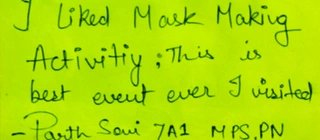 I Liked Mask Making
Activitiy ; This is
best event ever I visited
- Parth Soni 7A1 MPS,PN